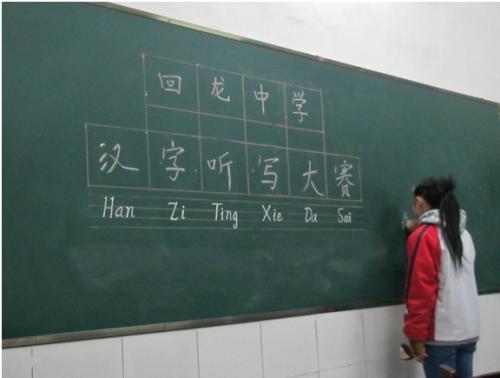 回龙中学
汉字听写大赛
Han Zi Ting Xie Da Sai